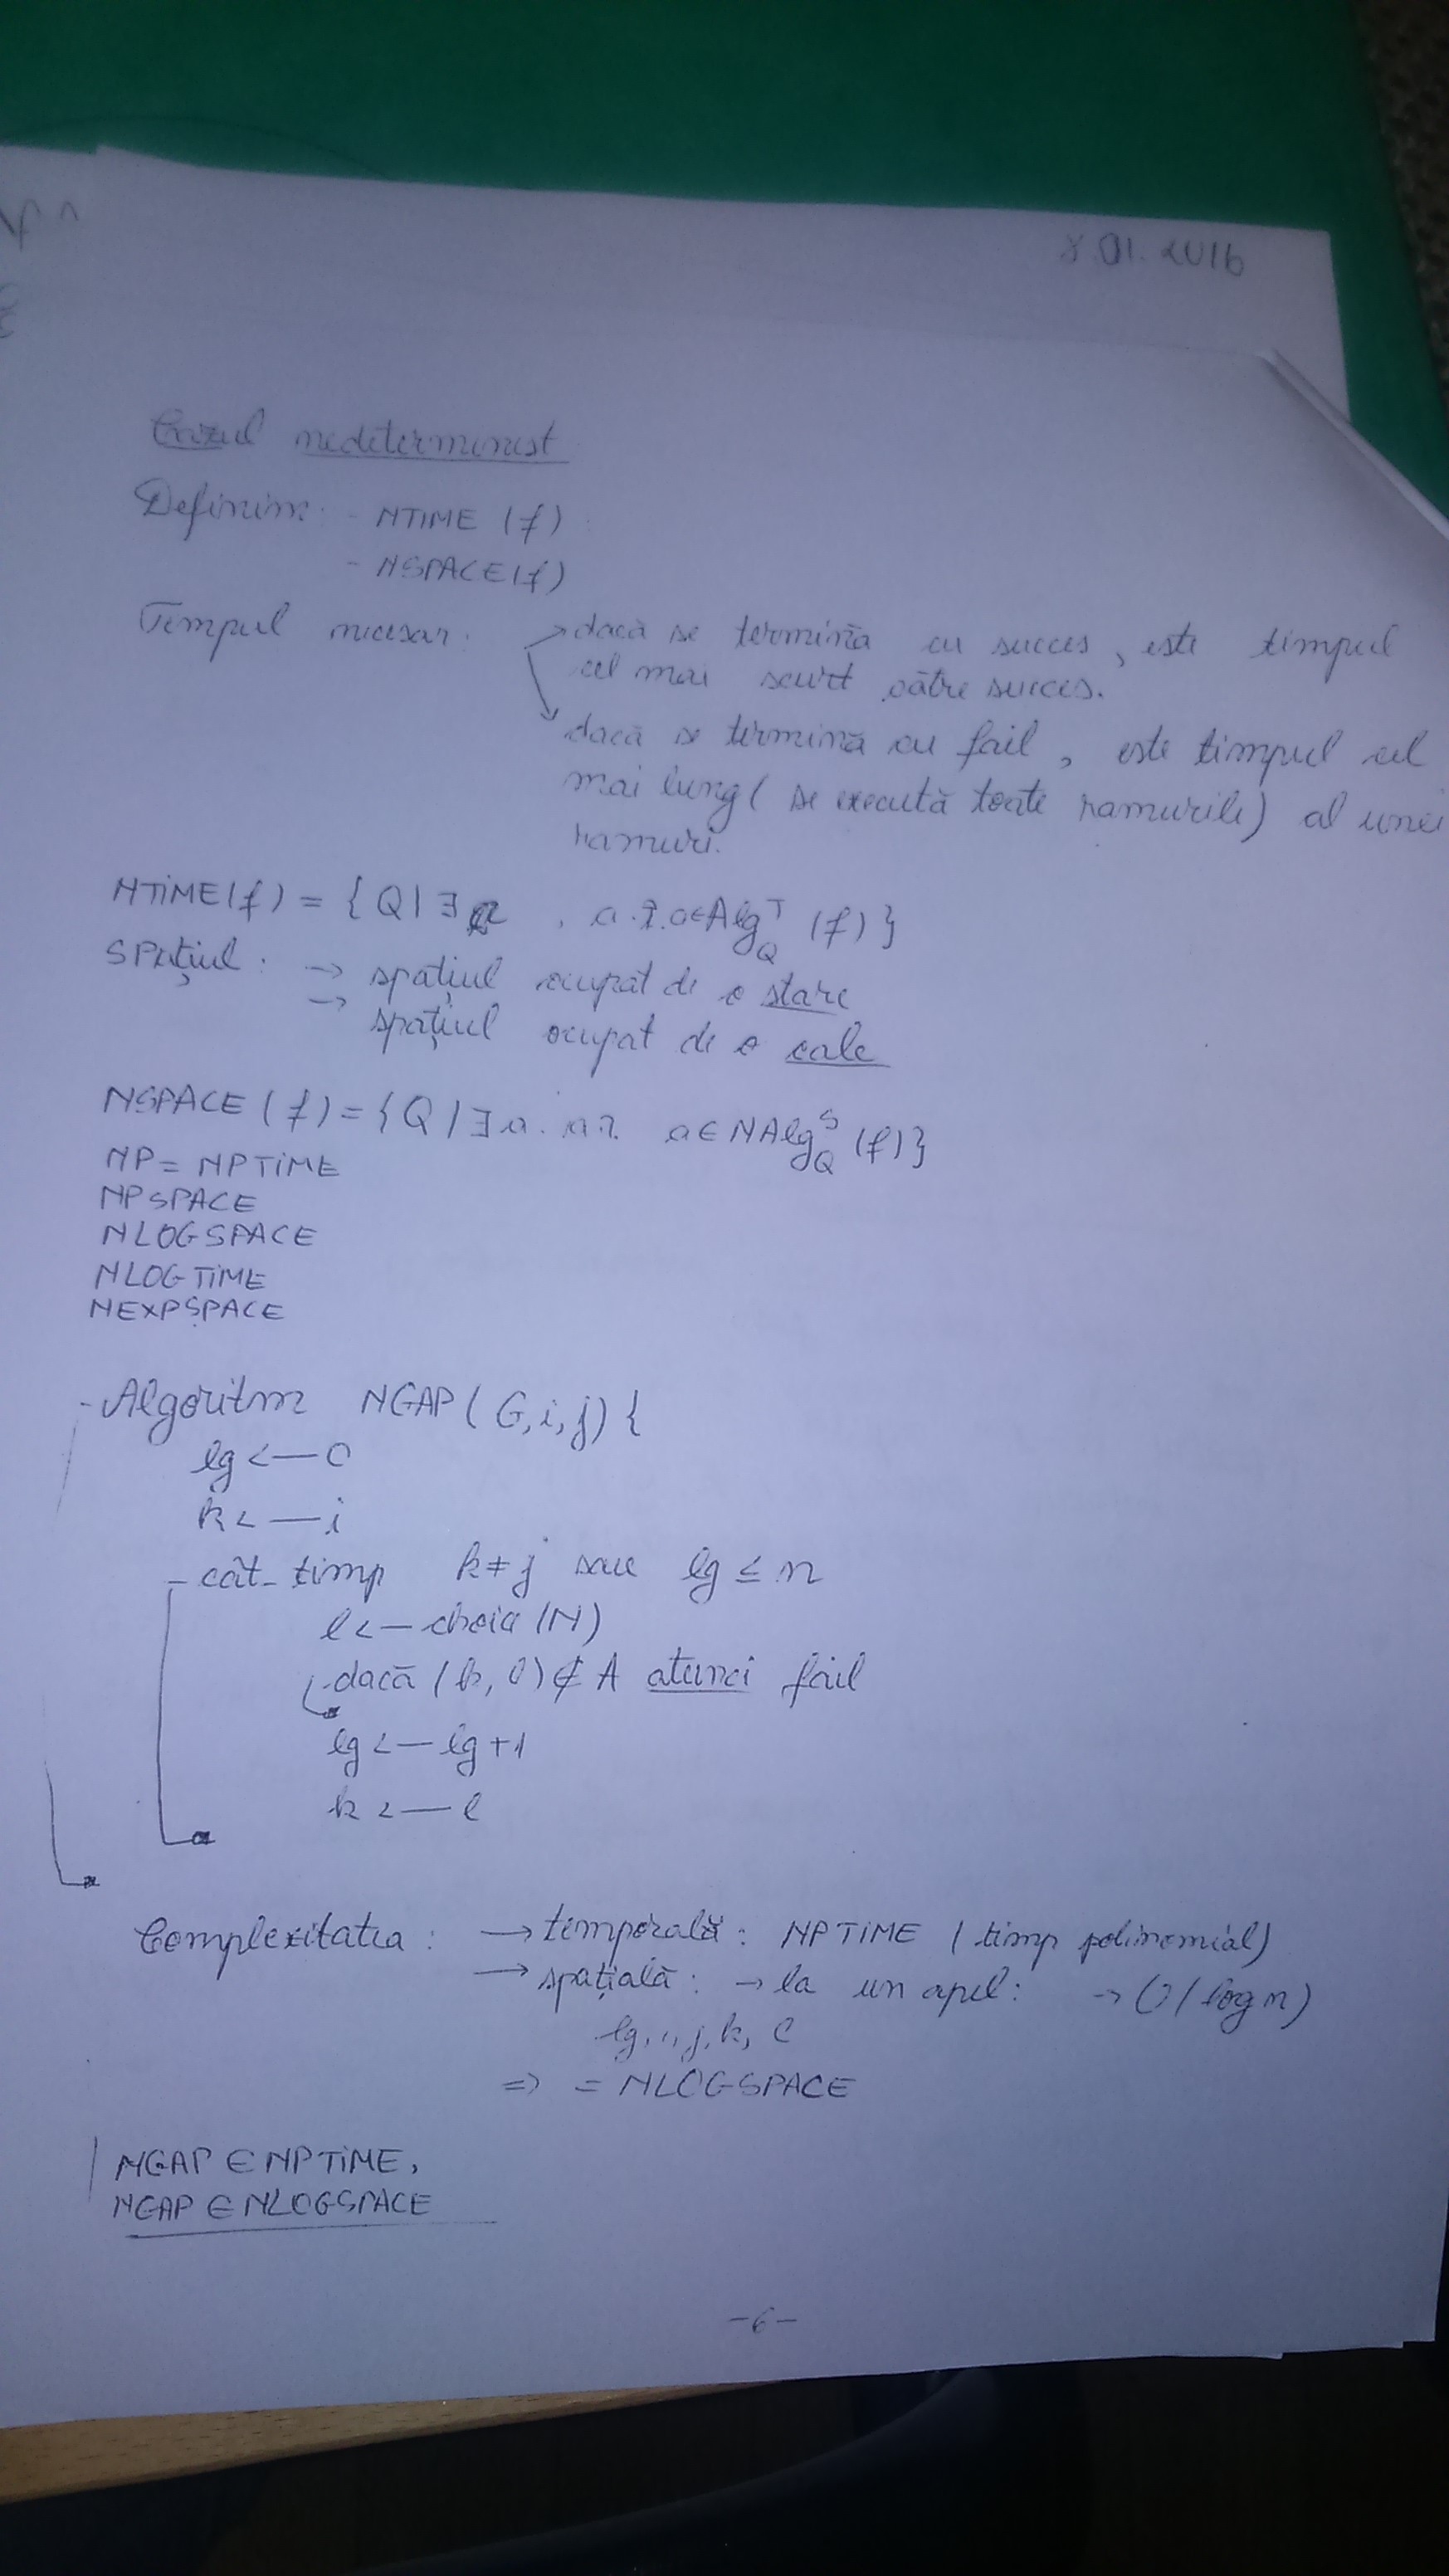 8.01.2016
Cazul nedeterminist
Definim: - NTIME (f)
- NSPACE(f)
Timpul necesar: → dacă se termină cu succes, este timpul
cel mai scurt către succes.
dacă se termină cu fail, este timpul cel
mai lung (se execută toate ramurile) al unei
ramuri.
NTIME(f) = {Q | ∃ a, a.î. a∈Alg^T_Q (f)}
Spațiul: → spațiul ocupat de o stare
→ spațiul ocupat de o cale
NSPACE (f) = {Q | ∃ a. a.î. a∈NAlg^S_Q (f)}
NP = NPTIME
NPSPACE
NLOGSPACE
NLOGTIME
NEXPSPACE
- Algoritm NGAP (G, i, j) {
lg <— 0
k <— i
- cât_timp k ≠ j sau lg ≤ n
l <— choice (N)
- dacă (k, l) ∉ A atunci fail
lg <— lg + 1
k <— l
Complexitatea: → temporală: NPTIME (timp polinomial)
→ spațială: → la un apel: → O(log n)
lg, i, j, k, l
=> = NLOGSPACE
NGAP ∈ NPTIME,
NGAP ∈ NLOGSPACE
-6-